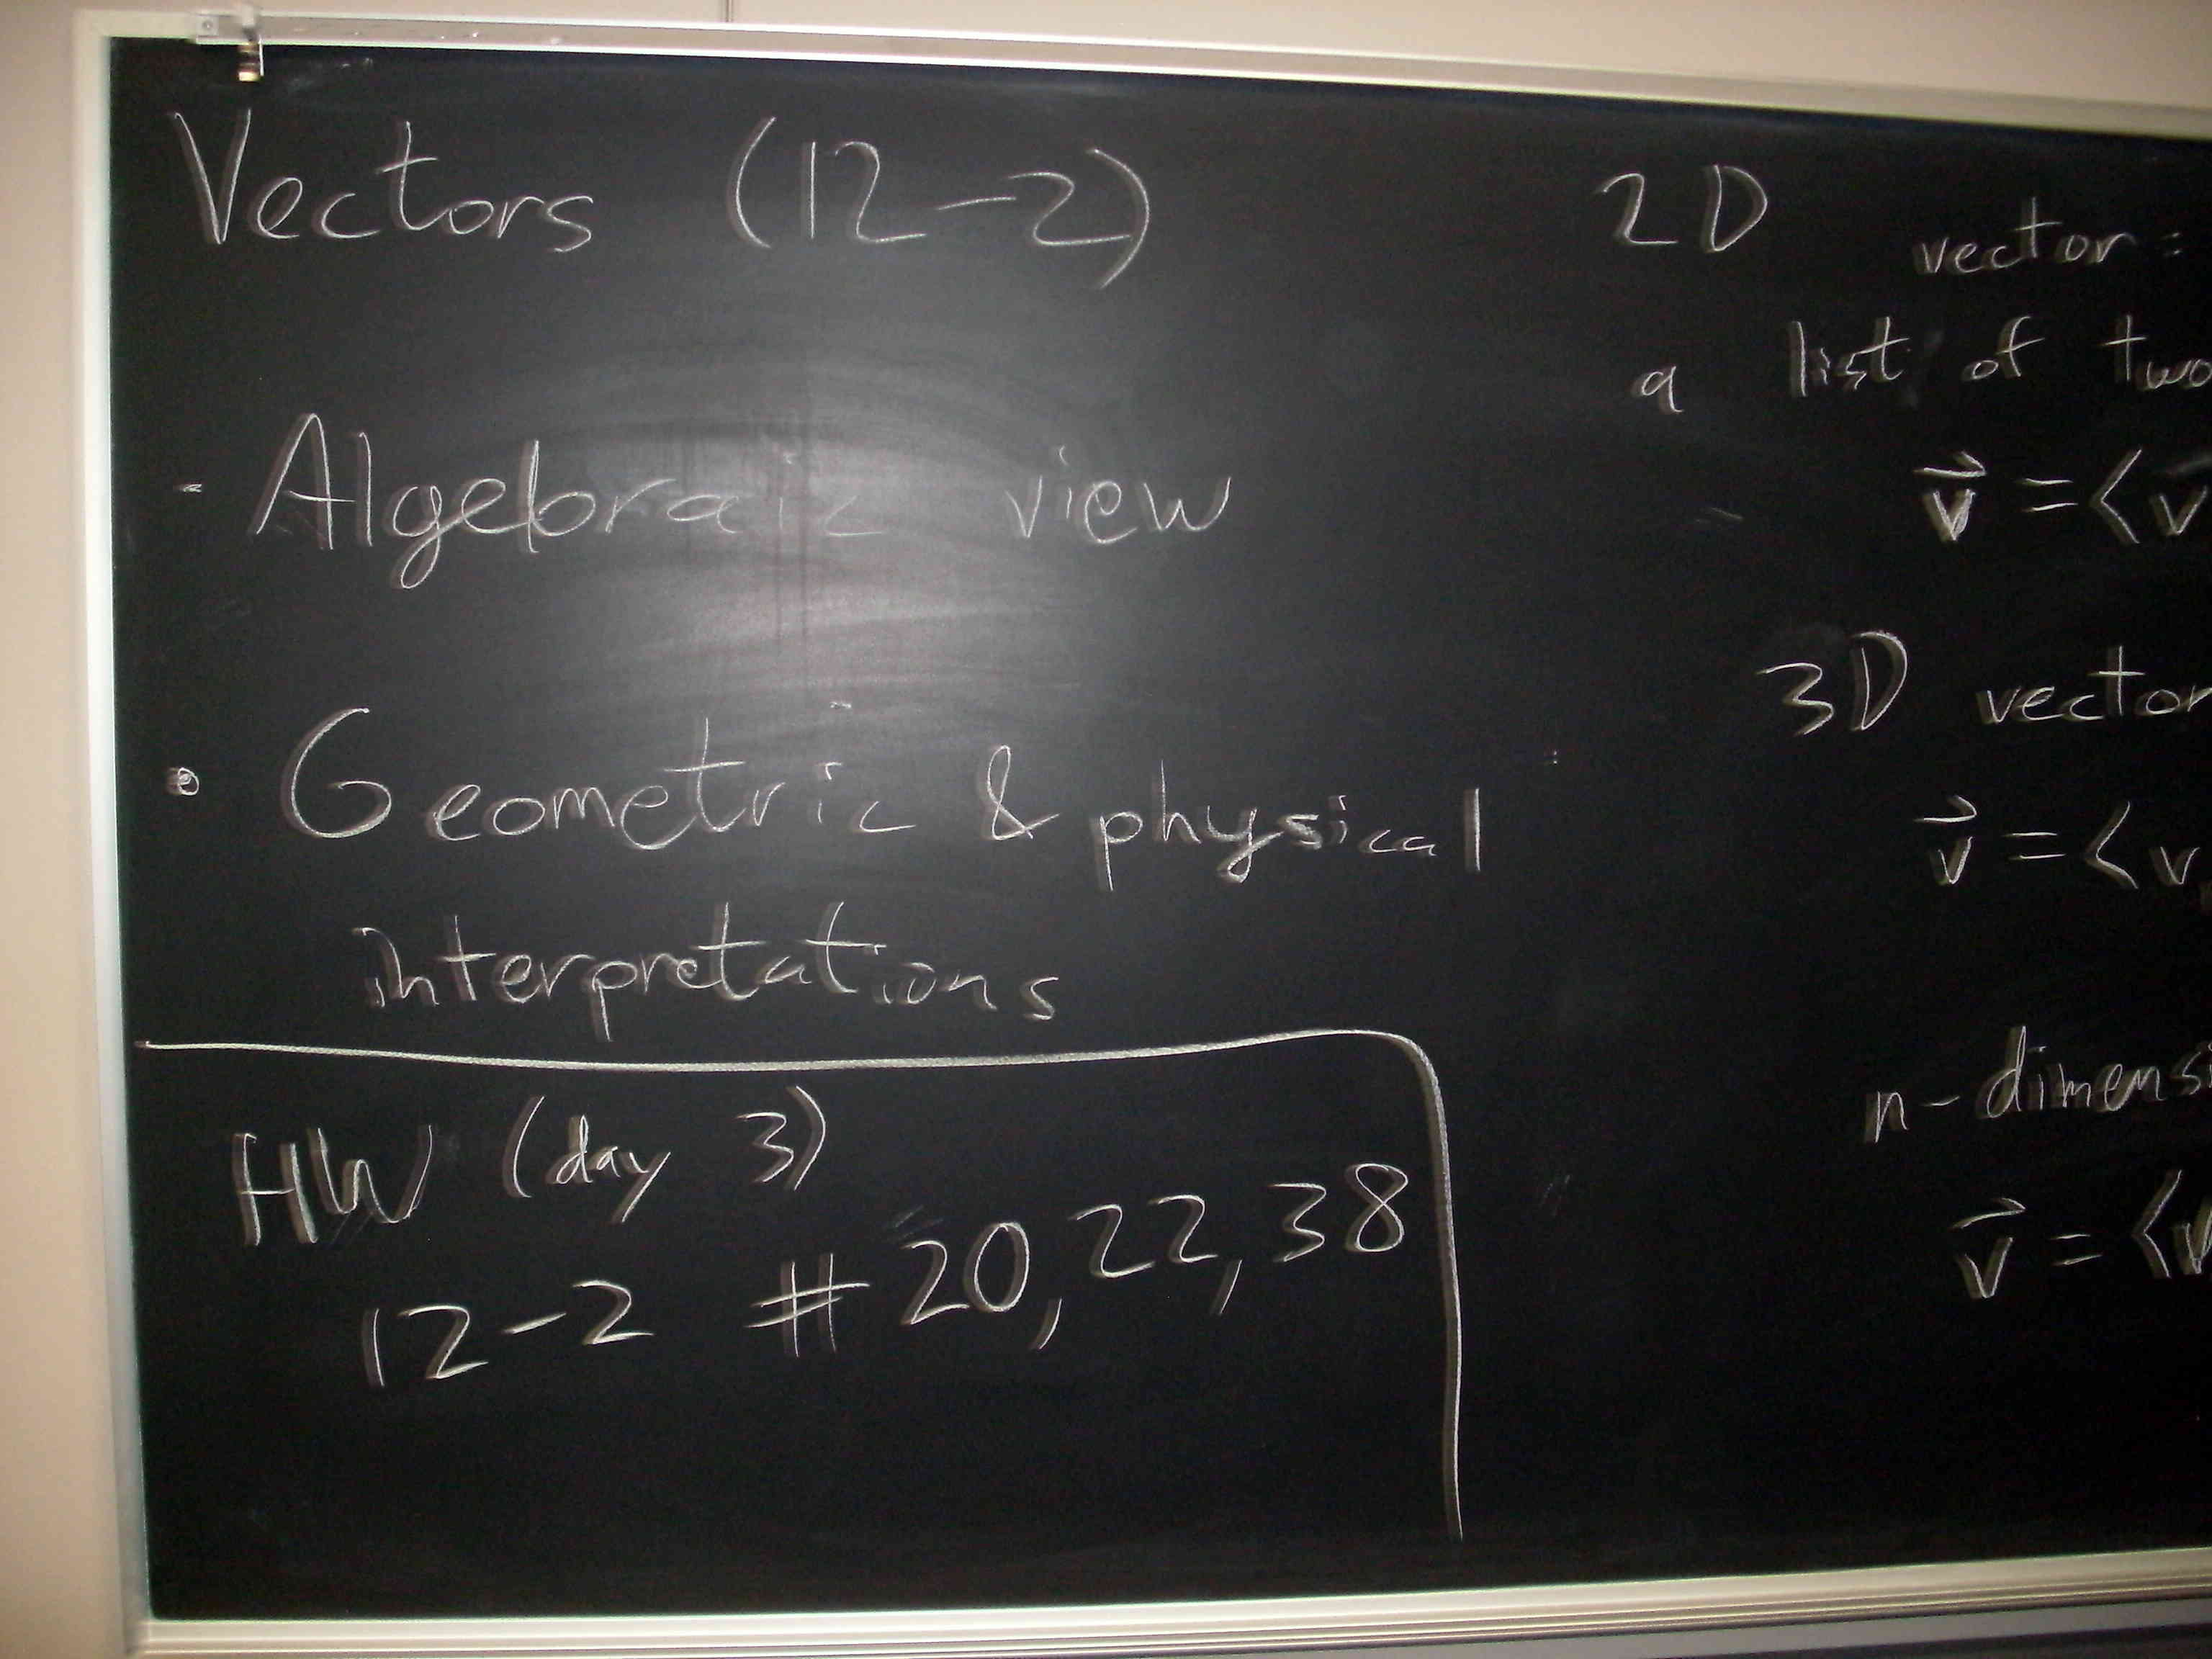 Vectors (12-2)
- Algebraic view
• Geometric & physical
interpretations
HW (day 3)
12-2 # 20, 22, 38
2D vector:
a list of two
v⃗ = <v
3D vector
v⃗ = <v
n-dimensi
v⃗ = <v